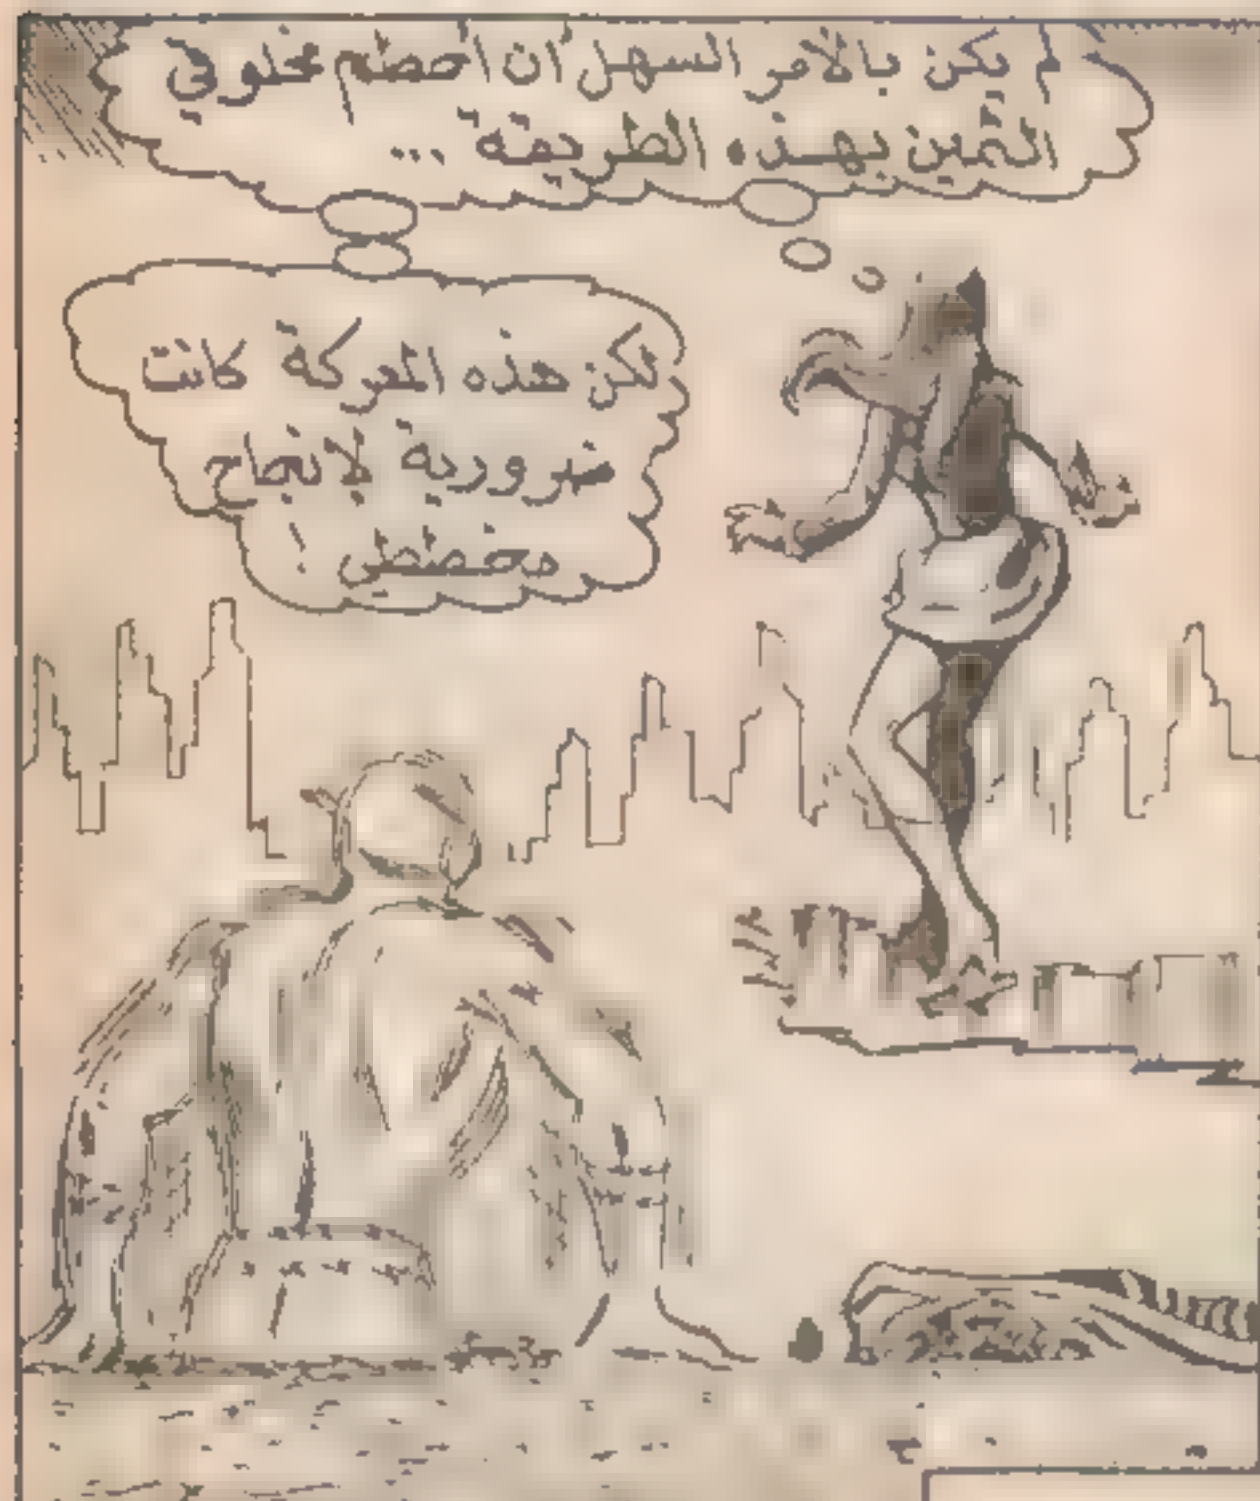 لم يكن بالأمر السهل أن أحطم مخلوقي
الثمين بهذه الطريقة ...
لكن هذه المعركة كانت
ضرورية لإنجاح
مخططي !